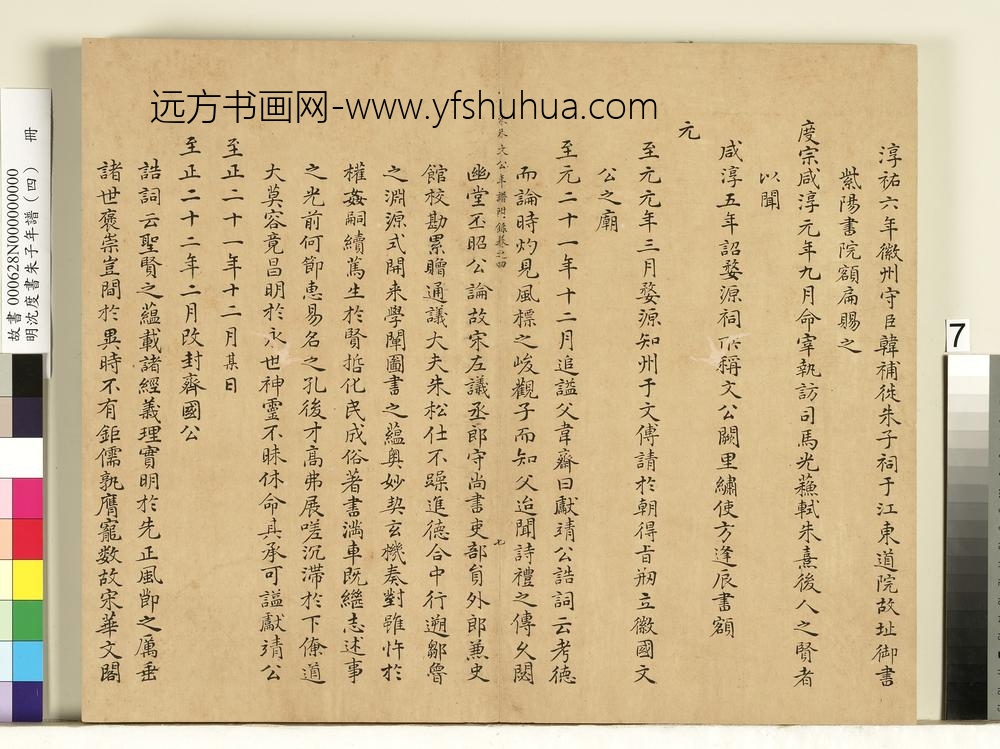 远方书画网-www.yfshuhua.com
淳祐六年徽州守臣韓補徙朱子祠于江東道院故址御書
紫陽書院額扁賜之
度宗咸淳元年九月命宰執訪司馬光蘓軾朱熹後人之賢者
以聞
咸淳五年詔婺源祠所稱文公闕里繡使方逢辰書額
元
至元元年三月婺源知州于文傳請於朝得旨刱立徽國文
公之廟
至元二十一年十二月追謚父韋齋曰獻靖公誥詞云考德
而論時灼見風標之峻觀子而知父迨聞詩禮之傳久閟
宋朱文公年譜附錄卷之四
七
幽堂丕昭公論故宋左議丞郎守尚書吏部員外郎兼史
館校勘累贈通議大夫朱松仕不躁進德合中行遡鄒魯
之淵源式開来學闡圖書之蘊奥妙契玄機奏對雖忤於
權姦嗣續萬生於賢哲化民成俗著書滿車既繼志述事
之光前何節惠易名之孔後才高弗展嗟沉滞於下僚道
大莫容竟昌明於永世神靈不昧休命其承可謚獻靖公
至正二十一年十二月某日
至正二十二年二月改封齊國公
誥詞云聖賢之蘊載諸經義理實明於先正風節之厲垂
諸世褒崇豈間於異時不有鉅儒孰膺寵数故宋華文閣
故書 000628N000000000
明沈度書朱子年譜(四) 冊
7